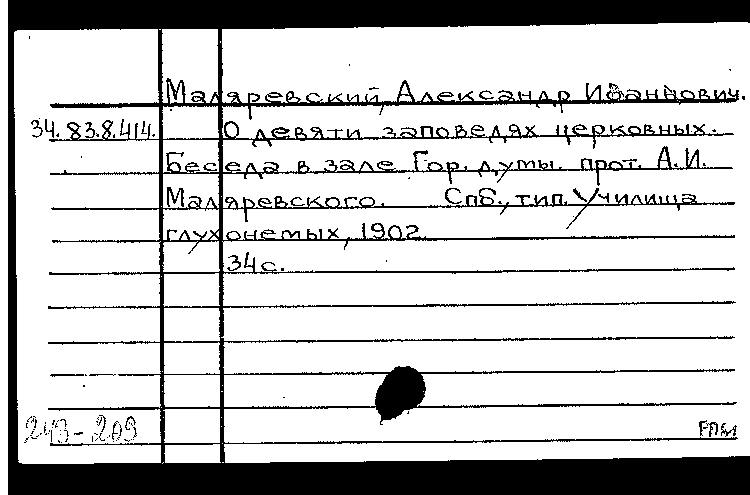 Маляревский, Александр Иванович.
34.83.8.414. О девяти заповедях церковных.
Беседа в зале Гор. думы. прот. А.И.
Маляревского. Спб., тип. Училища
глухонемых, 1902.
34 с.
243-209